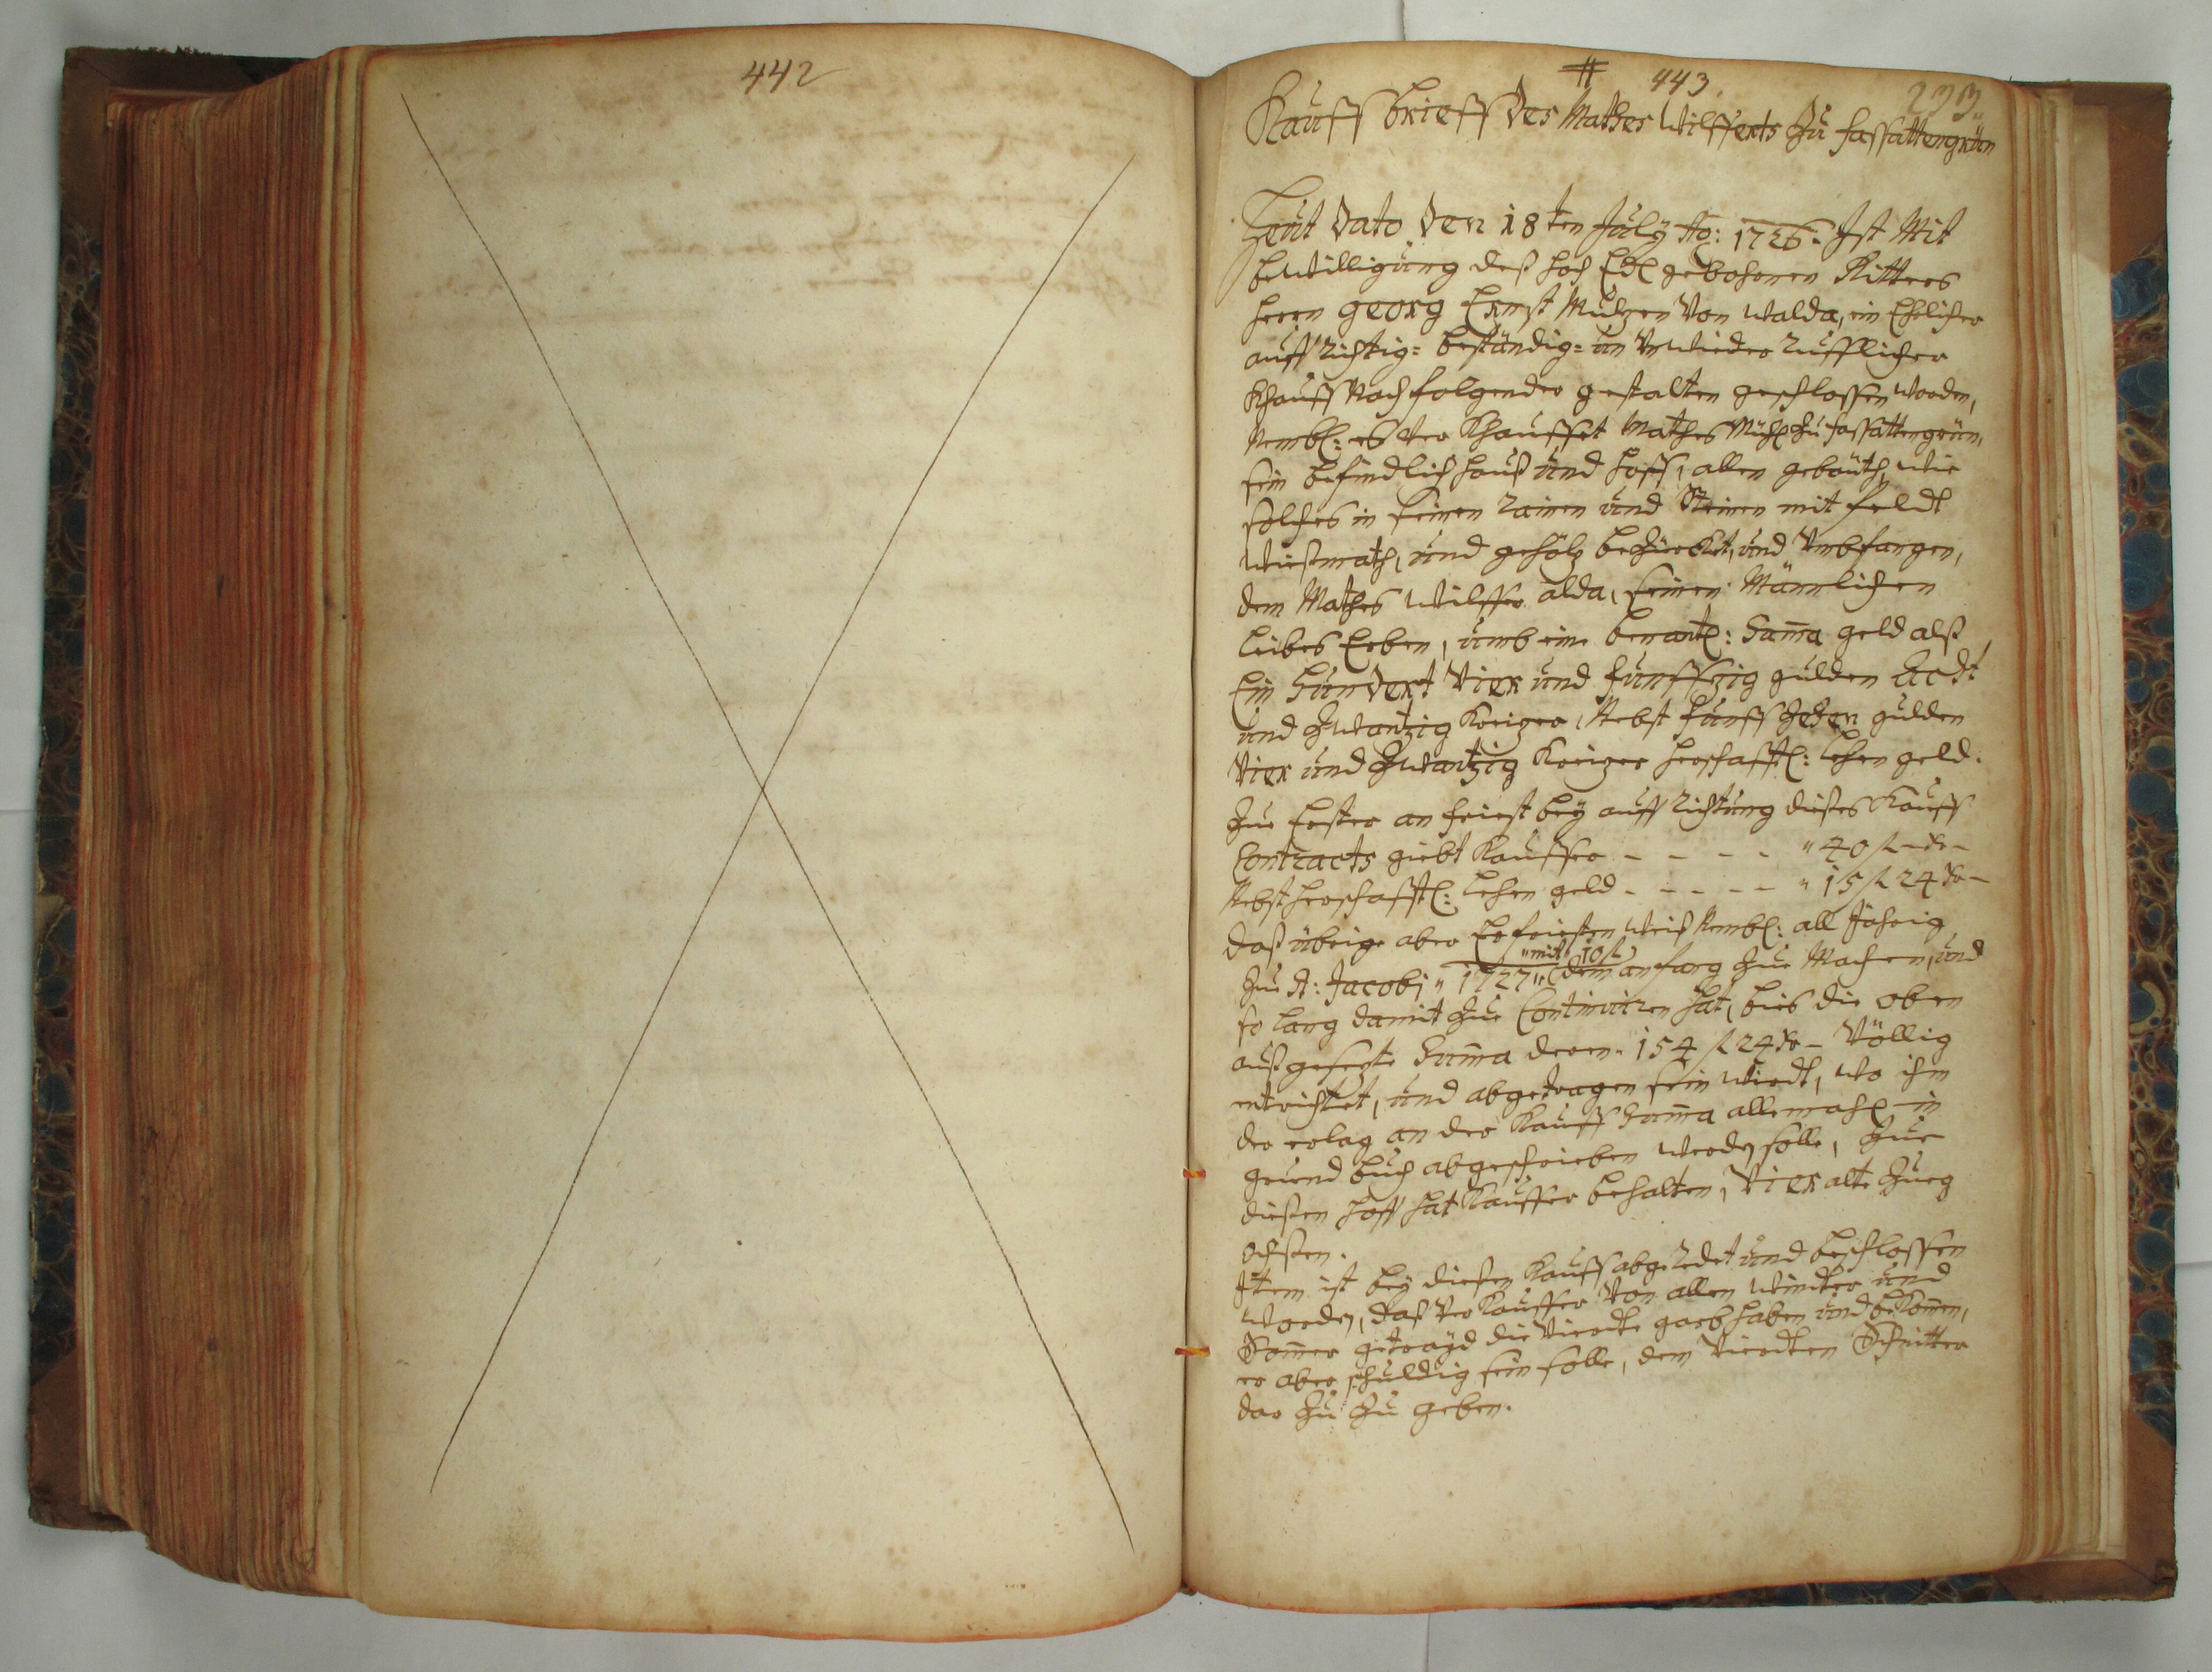 442
443
233
Kauff brieff des Mathes Wilfferts Zu fassattengrün
Heut dato den 18ten July Ao: 1726. Ist Mit
bewilligung deß hoch Edl gebohrnen Ritters
herrn georg Ernst Mulzen Von Walda, ein Ehrlicher
auff richtig= beständig= un Vnwieder rufflicher
Khauff Nach folgender gestalten geschlossen worden,
Nembl: es Ver Khauffet Mathes zu fassattengrün,
sein befindlich hauß und hoff, allen gebäuth, wie
solches in seinen rainen und Steinen mit feldt
wießmath, und gehölz bezircket, und Umbfangen,
dem Mathes Wilffer alda, seinen Männlichen
leibes Erben, umb eine benantl: Suma geld alß
Ein Hundert Vier und funffzig gulden Acht
und Zwantzig Kreizer, Nebst funff Zehen gulden
Vier und Zwantzig Kreizer herschafftl: lehen geld.
Zur Erster an friest bey auff richtung dießes Kauff
Contracts giebt Kauffer - - - - " 40 f - xr -
Nebst herschafftl: lehen geld - - - - - " 15 f 24 xr -
daß übrige aber Erfriesten weiß Nembl: all Jährig
"mit 10 f
zu St: Jacobi " 1727 " den anfang zur Machen, und
so lang damit zur Continuiren hat, bies die oben
auß gesezte Suma deren 154 f 24 xr - Völlig
entrichtet, und abgetragen sein wirdt, wo ihm
der erlag an der Kauff Suma allemahl in
grund buch abgeschrieben werden solle, Zur
dießen hoff hat Kauffer behalten, Vier alte Zueg
ochßen.
Item ist bey dießen Kauff abgeredet und beschlossen
worden, daß Ver Kauffer Von allen Winter und
Somer getrayd die Vierdte garb haben und bekomen,
er aber schuldig sein solle, dem Vierdten Schnitter
dar Zu Zu geben.